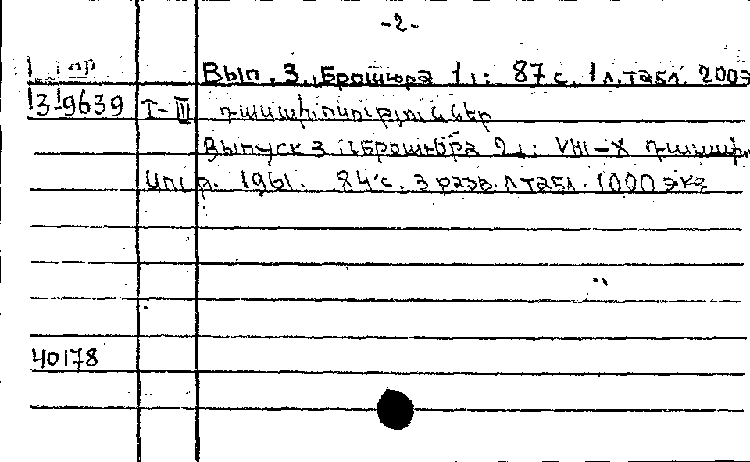 -2-
Вып. 3. Брошюра 1 : 87 с. 1 л. табл. 200э
1319639 I-III դասախոսություններ
Выпуск 3 : Брошюра 2 : VIII-X դասախ
1961. 84 с. 3 разв. л табл. 1000 экз
40178